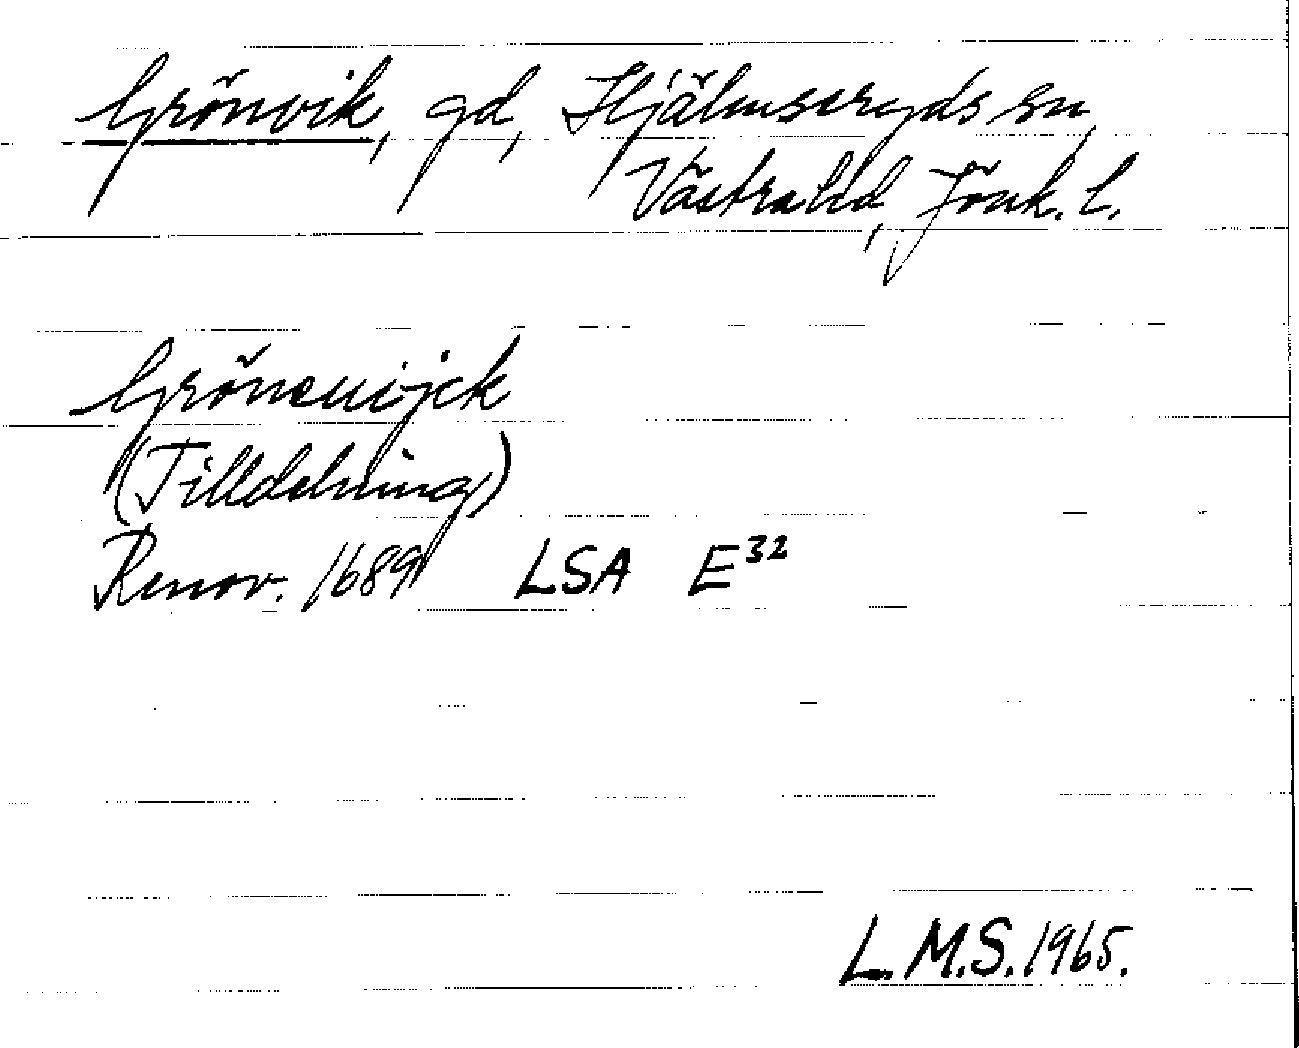 Grönvik, gd, Hjälmseryds sn,
Västra hd, Jönk. l.
Gröneuijck
(Tilldelning)
Renov. 1689 LSA E32
L.M.S. 1965.